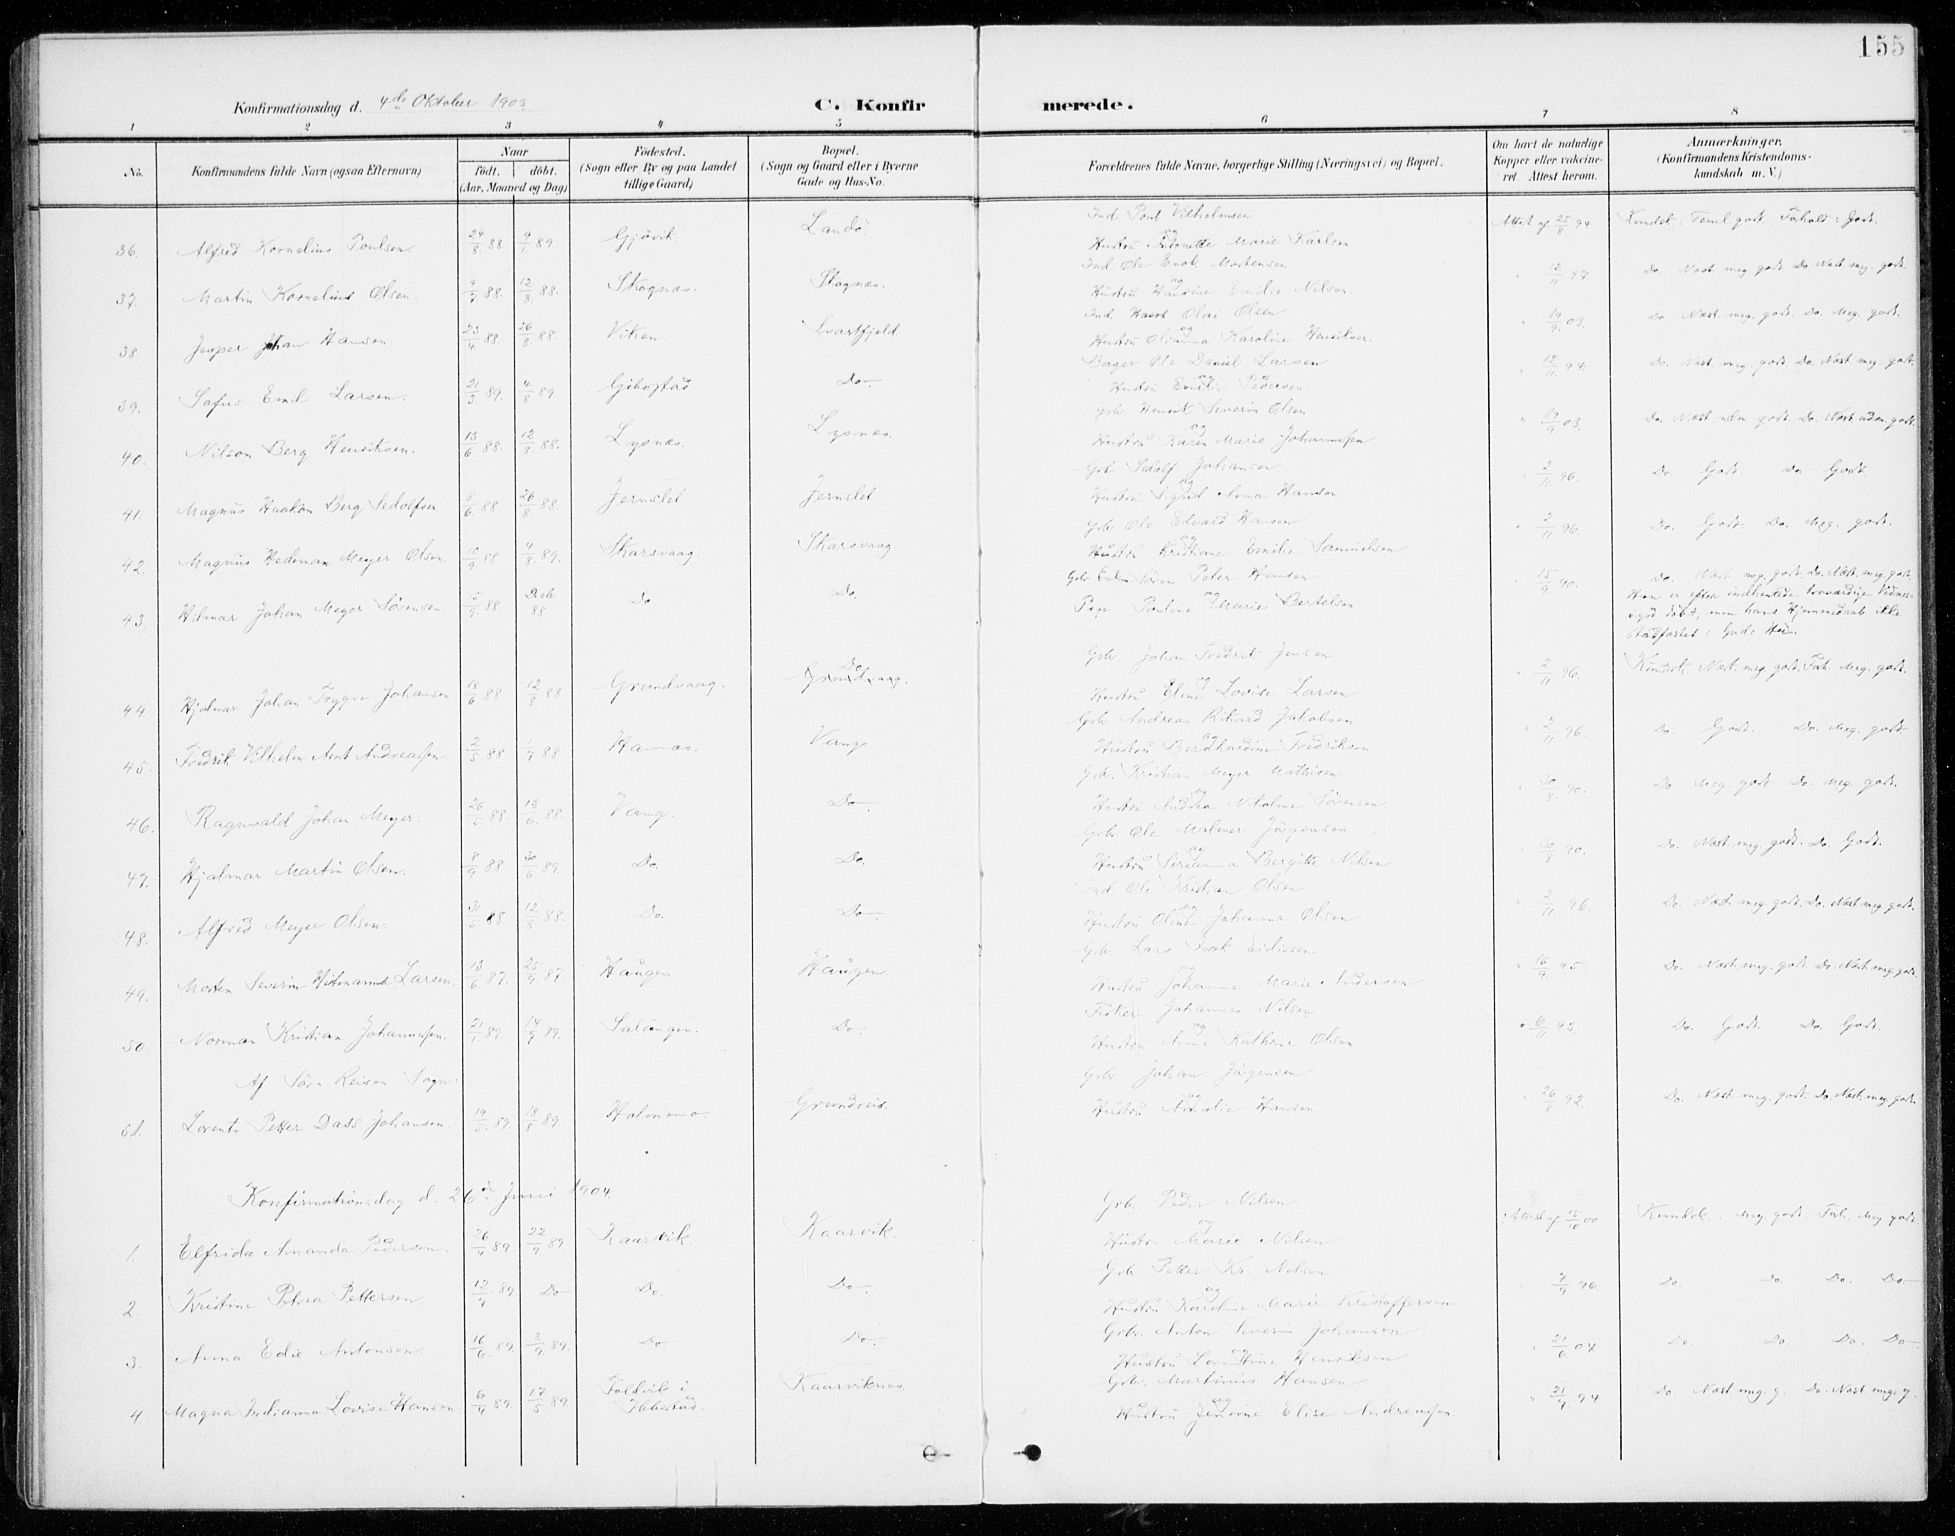 155
Konfirmationsdag d. 4de Oktober 1903
C. Konfirmerede.
1 2 3 4 5 6 7 8
No. Konfirmandens fulde Navn (ogsaa Efternavn) Naar født. døbt. (Aar, Maaned og Dag) Fødested. (Sogn eller By og paa Landet tillige Gaard) Bopæl. (Sogn og Gaard eller i Byerne Gade og Hus-No. Forældrenes fulde Navne, borgerlige Stilling (Næringsvei) og Bopæl. Om havt de naturlige Kopper eller vaccineret. Attest herom. Anmærkninger. (Konfirmandens Kristendomskundskab m. V.)
Ind Poul Vilhelmsen
36. Alfred Kornelius Poulsen. 24/8 88 9/1 89. Gjövik. Landö. og Hustru Antonette Marie Karlsen Attest af 25/8 94 Kundsk. Teml. godt Forhold: Godt.
Ind Ole Enok Mortensen
37. Martin Kornelius Olsen. 9/7 88. 12/8 88. Skognæs. Skognæs. og Hustru Hansine Emilie Nilsen. " 12/11 94 Do. Næst meg. godt Do Næst meg. godt.
Ind Olai Olsen
38 Jesper Johan Hansen. 23/4 88 26/8 88. Viken. Svartfjeld og Hustru Olianna Karoline Henriksen. " 19/9 03. Do. Næst meg. godt. Do. Meg. godt.
Bager Ole Daniel Larsen
39. Sofus Emil Larsen. 21/3 89. 4/8 89. Gibostad Do. og Hustru Emilie Pedersen. " 12/11 94. Do. Næst meg. godt Do. Næst meg. godt.
Gbr. Henrik Severin Olsen
40. Nilson Berg Henriksen. 13/6 88. 12/8 88. Lysnæs. Lysnæs. og Hustru Karen Marie Johannesen 03. Do. Næst uden godt. Do. Næst uden godt.
Gbr. Sedolf Johansen
41. Magnus Haakon Berg Sedolfsen 8/6 88. 26/8 88. Jernslet Jernslet og Hustru Sigrid Anna Hansen. " 2/11 96. Do. Godt. Do Godt.
Gbr. Ole Edvard Hansen
42. Magnus Hedeman Meyer Olsen. 10/9 88 4/8 89. Skarsvaag. Skarsvaag og Hustru Kristiane Emilie Samuelsen. " 2/11 96. Do. Godt. Do. Meg. godt.
Gbr. Enkem Søren Peter Hansen
43. Hilmar Johan Meyer Sörensen 15/9 88 88 Do Do. og Pige Pauline Marie Bertelsen " 15/9 90. Do. Næst meg. godt. Do. Næst. meg. godt.
Han er efter indhentede troværdige Vidnesbyrd döbt, men hans Hjemmedaab ikke
stadfæstet i Guds Hus.
Gbr. Johan Fredrik Jensen
44. Hjalmar Johan Trygve Johansen 18/6 88 12/8 88 Grundvaag. Do Grundvaag. og Hustru Eline Lovise Larsen. " 2/11 96. Kundsk. Næst. meg. godt. Foh. Meg. godt.
Gbr. Andreas Rikard Jakobsen
45. Fredrik Vilhelm Arnt Andreassen. 2/5 88 1/7 88 Havnæs. Vang og Hustru Berdhardine Fredriksen " 2/11 96. Do. Godt. Do. Meg. godt
Gbr. Kristian Meyer Mathisen
46. Ragnvald Johan Meyer. 26/5 88. 13/6 88. Vang. Do. og Hustru Andrea Nikoline Sörensen " 30/8 90. Do Meg. godt Do. Meg. godt.
Gbr Ole Malmer Jörgensen
47. Hjalmar Martin Olsen. 8/9 88 30/6 89. Do. Do. og Hustru Bergitte Nilsen " 30/8 90. Do. Næst meg. godt. Do. Godt.
Ind Ole Kristian Olsen
48. Alfred Meyer Olsen. 31/5 88. 12/8 88. Do. Do. og Hustru Oline Johanna Olsen " 2/11 96. Do. Næst. meg. godt. Do. Næst meg. godt.
Gbr Lars Isak Eidissen
49. Morten Severin Larsen. 13/6 87. 25/9 87. Haugen Haugen. og Hustru Johanna Marie Andersen " 16/9 95. Do. Næst meg. godt. Do. Næst. meg. godt.
Fisker Johannes Nilsen
50. Norman Kristian Johannesen. 21/1 89. 14/7 89. Salangen. Do. og Hustru Anne Kathrine Olsen " 6/11 93. Do. Godt. Do. Godt.
Af Sörreisen Sogn:
Gbr. Johan Jörgensen
51. Lorents Petter Dass Johansen. 19/5 89. 18/8 89. Holmemo. Grundreis. og Hustru Amalie Hansen " 26/8 92. Do. Næst meg. godt. Do. Næst. meg. godt.
Konfirmationsdag d. 26de Juni 1904.
Gbr. Peder Nilsen
1. Elfrida Amanda Pedersen. 26/4 89. 22/9 89. Kaarvik. Kaarvik. og Hustru Marie Nilsen Attest af 15/10 00 Kundsk. Meg. godt. Foh. Meg godt.
Gbr. Petter Kr. Nilsen
2. Kristine Petrea Pettersen 12/7 89 Do Do. Do. og Hustru Karoline Marie Kristoffersen " 7/9 96 Do. Do. Do. Do
Gbr. Anton Severin Johansen
3. Anna Edie Antonsen. 16/6 89. 8/9 89. Do. Do. og Hustru Henriksen " 21/6 04 Do. Do. Do. Do
Gbr. Martinus Hansen
4 Magna Indianna Lovise Hansen 6/4 89. 17/5 89 Foldvik i Ibbestad. Kaarviknes. og Hustru Elise Andreassen. " 21/9 94 Do. Næst meg. g. Do. Næst meg. g.